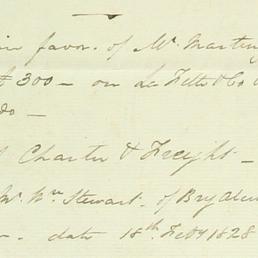 in favor. of Mr. Martin
300 — on La Fitte & Co
do —
Charter & Freight —
Mr. Wm Stewart. of Bryden
date 18th Feby 1828